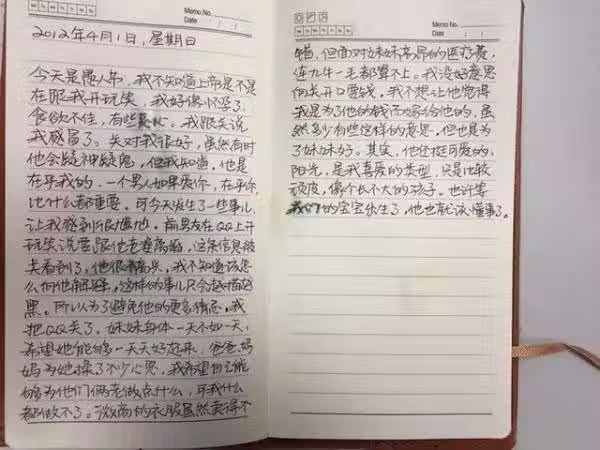 Memo No.
Date / /
2012年4月1日,星期日
今天是愚人节,我不知道上帝是不是
在跟我开玩笑,我好像怀孕了,
食欲不佳,有些恶心。我跟关说
我感冒了。关对我很好,虽然有时
他会疑神疑鬼,但我知道,他是
在乎我的,一个男人如果爱你,在乎你
比什么都重要。可今天发生了一些事儿
让我感到很尴尬。前男友在QQ上开
玩笑说要跟他老婆离婚,这条信息被
关看到了,他很不高兴,我不知道该怎
么向他解释,这样的事儿只会越描越
黑。所以为了避免他的更多猜忌,我
把QQ关了。妹妹身体一天不如一天,
希望她能够一天天好起来,爸爸妈
妈为她操了不少心思,我希望自己能
够为他们俩老做点什么,可我什么
都做不了。微商的衣服虽然卖得不
Memo No.
Date / /
错,但面对妹妹高昂的医疗费,
连九牛一毛都算不上。我没好意思
向关开口要钱,我不想让他觉得
我是为了他的钱而嫁给他的,虽
然多少有些这样的意思,但也是为
了妹妹好。其实,他还挺可爱的,
阳光,是我喜爱的类型,只是比较
顽皮,像个长不大的孩子。也许等
我们的宝宝出生了,他也就该懂事了。